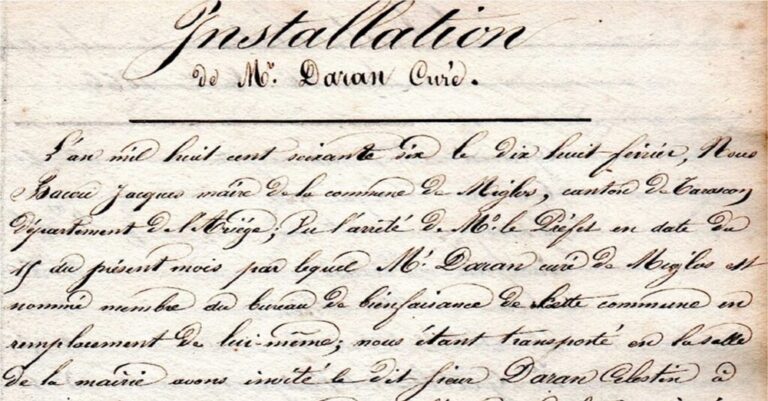 Installation
de Mr. Daran Curé.
L'an mil huit cent soixante six le dix huit février, Nous
Jacques maire de la commune de Miglos, canton de Tarascon,
département de l'Ariége; Vu l'arrêté de Mr. le Préfet en date du
15 du présent mois par lequel Mr. Daran curé de Miglos est
nommé membre du bureau de bienfaisance de cette commune en
remplacement de lui-même; nous étant transporté en la salle
de la mairie avons invité le dit sieur Daran Célestin à